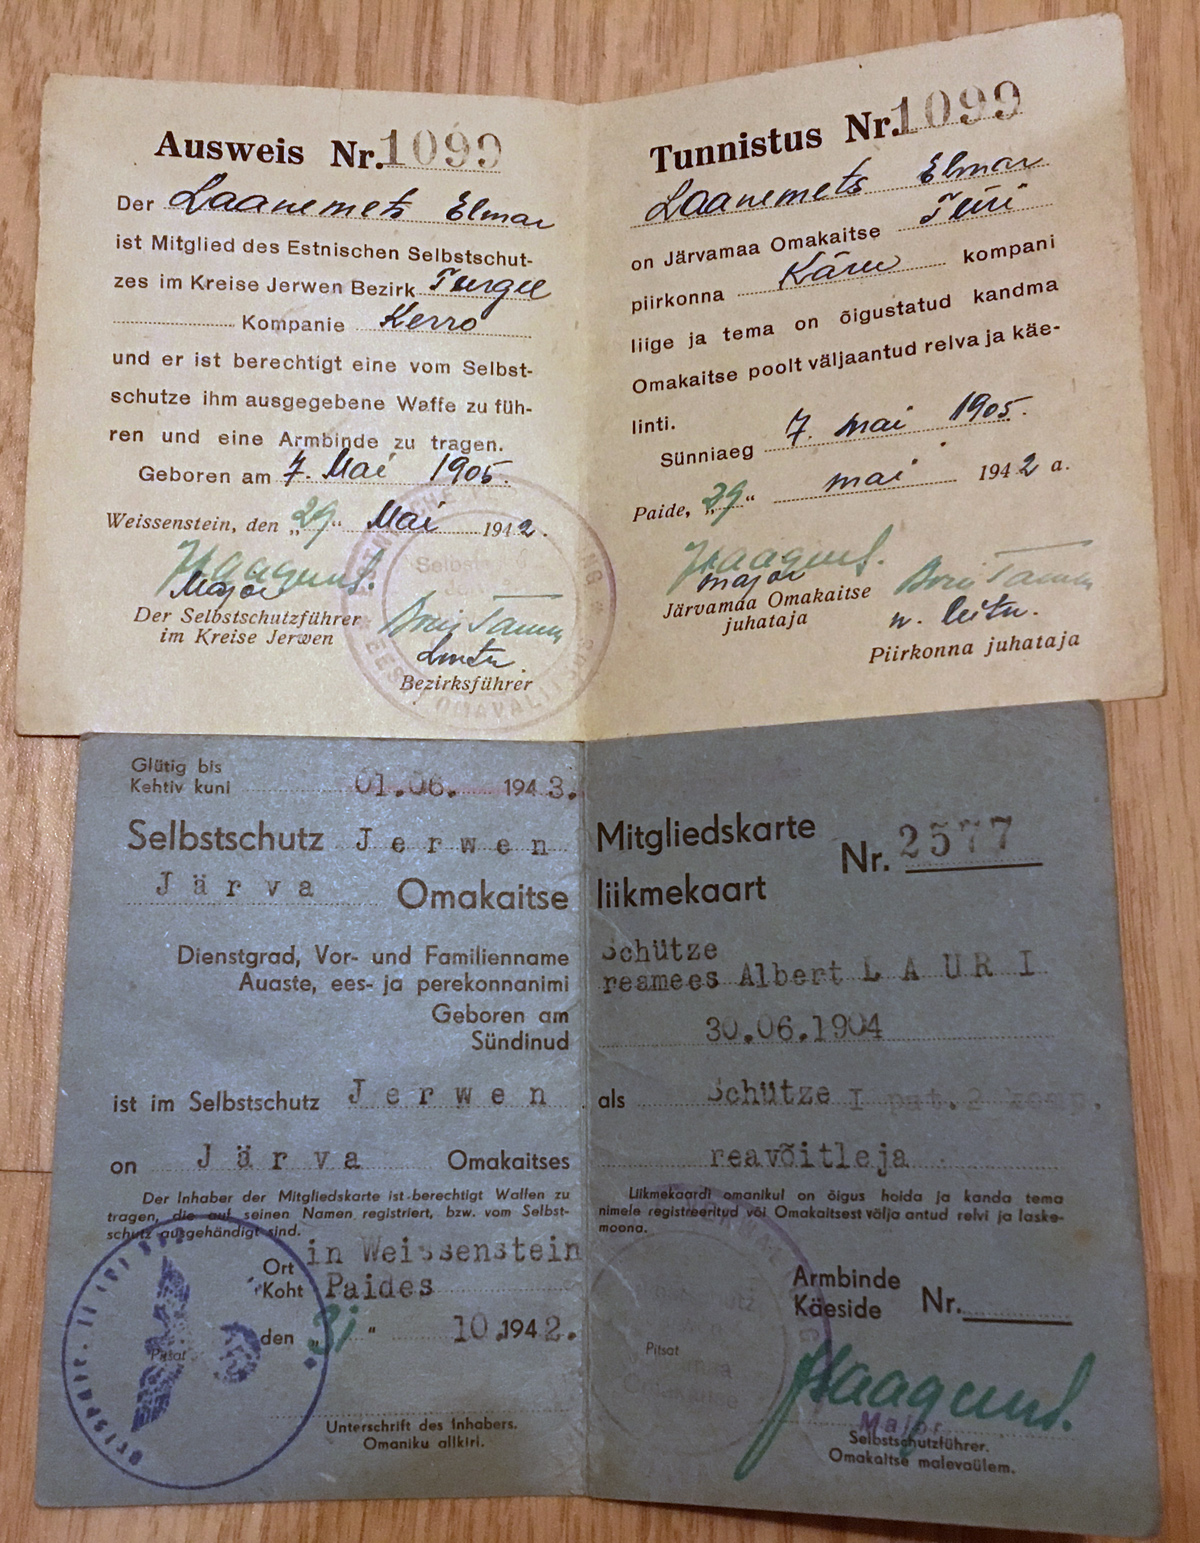 Ausweis Nr. 1099
Der Laanemets Elmar
ist Mitglied des Estnischen Selbstschut-
zes im Kreise Jerwen Bezirk Turgel
Kompanie Kerro
und er ist berechtigt eine vom Selbst-
schutze ihm ausgegebene Waffe zu füh-
ren und eine Armbinde zu tragen.
Geboren am 7. Mai 1905.
Weissenstein, den „29“ Mai 1942.
Major
Der Selbstschutzführer
im Kreise Jerwen
Bezirksführer
Tunnistus Nr. 1099
Laanemets Elmar
on Järvamaa Omakaitse Türi
piirkonna Käru kompani
liige ja tema on õigustatud kandma
Omakaitse poolt väljaantud relva ja käe-
linti.
Sünniaeg 7. mai 1905.
Paide, „29“ mai 1942 a.
major
Järvamaa Omakaitse
juhataja
n. leitn.
Piirkonna juhataja
EESTI OMAVALITSUS
Glütig bis
Kehtiv kuni 01.06. 1943.
Selbstschutz Jerwen
Järva Omakaitse
Dienstgrad, Vor- und Familienname
Auaste, ees- ja perekonnanimi
Geboren am
Sündinud
ist im Selbstschutz Jerwen
on Järva Omakaitses
Der Inhaber der Mitgliedskarte ist berechtigt Waffen zu
tragen, die auf seinen Namen registriert, bzw. vom Selbst-
schutz ausgehändigt sind.
Ort in Weissenstein
Koht Paides
den „31“ 10.1942.
Pitsat
Unterschrift des Inhabers.
Omaniku allkiri.
Mitgliedskarte
Nr. 2577
liikmekaart
Schütze
reamees Albert LAURI
30.06.1904
als Schütze I pat. 2 komp.
reavõitleja
Liikmekaardi omanikul on õigus hoida ja kanda tema
nimele registreeritud või Omakaitsest välja antud relvi ja laske-
moona.
Armbinde
Käeside Nr.
Pitsat
Major
Selbstschutzführer.
Omakaitse malevaülem.